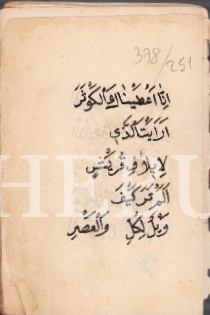 378/251
اِنَّا اَعْطَيْنَاكَ الْكَوْثَرَ
اَرَاَيْتَ الَّذِي
لِاِيلَافِ قُرَيْشٍ
اَلَمْ تَرَ كَيْفَ
وَيْلٌ لِكُلِّ وَالْعَصْرِ